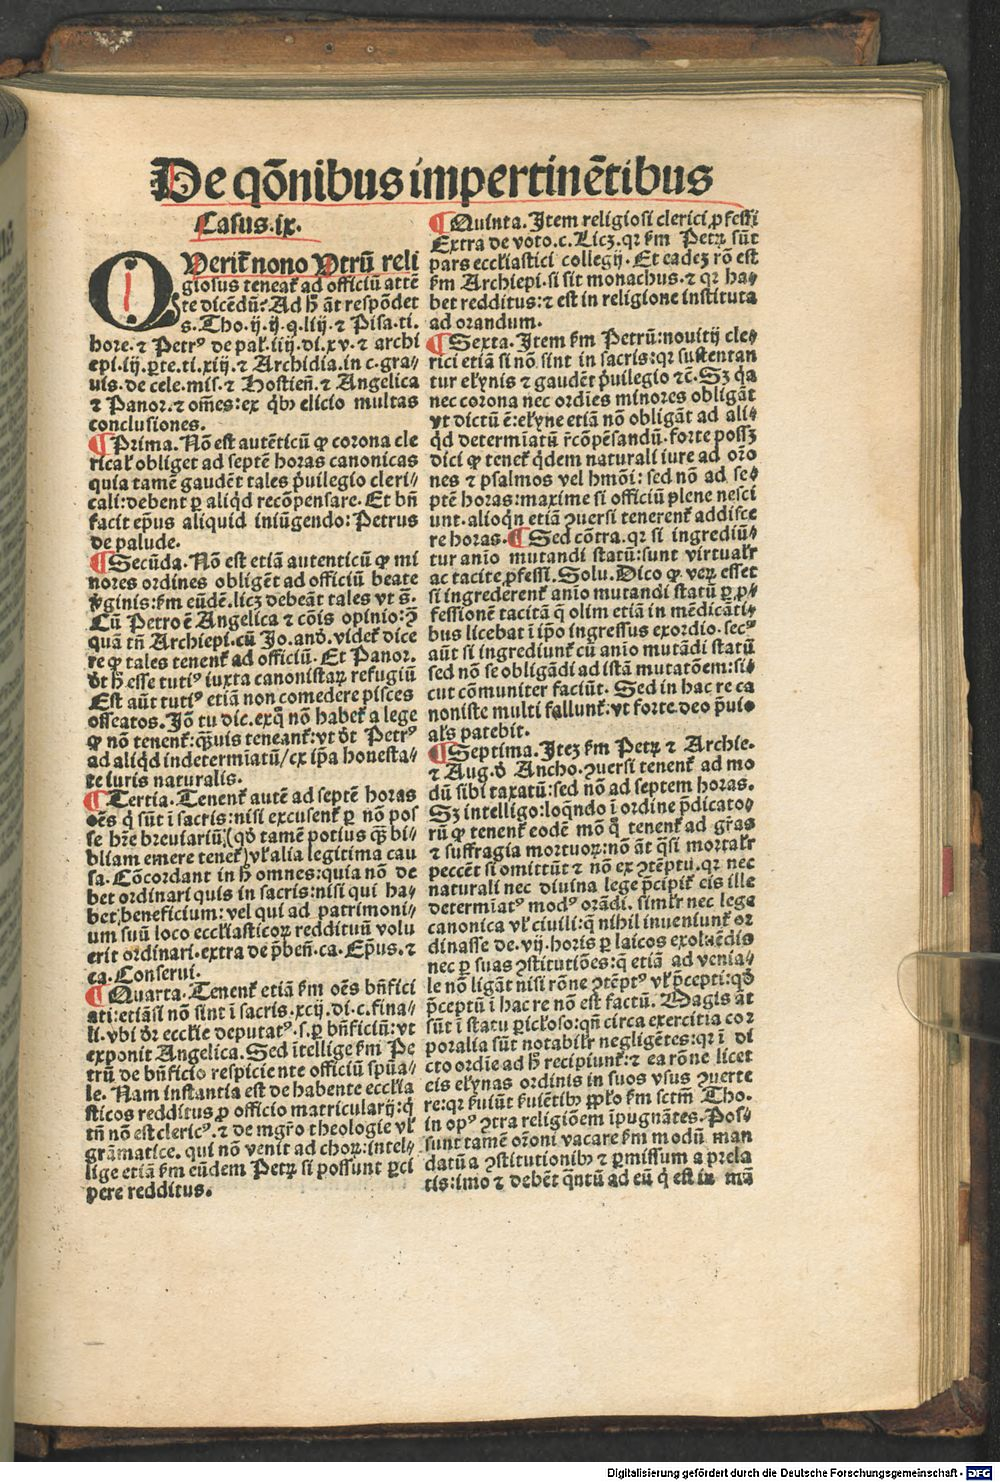 De qōnibus impertinētibus
Casus.ix.
QVeriť nono Vtrū reli
giosus teneať ad officiū attē
te dicēdū: Ad h̄ āt respōdet
s.Tho.ij.ij.q.liij.⁊ Pisa.ti.
hore.⁊ Petrꝰ de pal.iiij.di.xv.⁊ archi
epi.iij.ꝑte.ti.xiij.⁊ Archidia.in c.gra⸗
uis.de cele.mis.⁊ Hostień.⁊ Angelica
⁊ Panor.⁊ om̄es:ex qͥbꝰ elicio multas
conclusiones.
¶Prima. Nō est autēticū ꝙ corona cle
ricał obliget ad septē horas canonicas
quia tamē gaudēt tales p̄uilegio cleri⸗
cali:debent ꝑ aliqd̄ recōpensare. Et bn̄
facit ep̄us aliquid iniūgendo: Petrus
de palude.
¶Secūda. Nō est etiā autenticū ꝙ mi
nores ordines obligēt ad officiū beate
v̓ginis: ẜm eūdē.licꝫ debeāt tales vt s̄.
Cū Petro ē Angelica ⁊ cōis opinio:ꝯ
quā tn̄ Archiepi.cū Jo.and̄.videť dice
re ꝙ tales tenenť ad officiū. Et Panor.
d̄t h̄ esse tutiꝰ iuxta canonistaꝝ refugiū
Est aūt tutiꝰ etiā non comedere pisces
osseatos. Jō tu dic.exq̄ nō habeť a lege
ꝙ nō tenenť:qͣuis teneanť:vt d̄t Petrꝰ
ad aliqd̄ indetermiatū/ex ip̄a honesta⸗
te iuris naturalis.
¶Tertia. Tenenť autē ad septē horas
oēs q̄ sūt ī sacris:nisi excusenť ꝑ nō pos
se hr̄e breuiariū:(qd̄ tamē potius qͣ bi⸗
bliam emere teneť)vł alia legitima cau
sa. Cōcordant in h̄ omnes:quia nō de
bet ordinari quis in sacris:nisi qui ha⸗
bet beneficium: vel qui ad patrimoni⸗
um suū loco eccłiasticoꝝ reddituū volu
erit ordinari.extra de p̄bēn.ca. Ep̄us.⁊
ca. Conserui.
¶Quarta. Tenenť etiā ẜm oēs bn̄fici
ati:etiāsi nō sint ī sacris.xcij.di.c.fina⸗
li.vbi dr̄ ecclie deputatꝰ.s.ꝑ bn̄ficiū:vt
exponit Angelica. Sed ītellige ẜm Pe
trū de bn̄ficio respiciente officiū sp̄ua⸗
le. Nam instantia est de habente ecclia
sticos redditus ꝓ officio matricularij:q̄
tn̄ nō est clericꝰ.⁊ de mgr̄o theologie vł
grāmatice. qui nō venit ad choꝝ:intel⸗
lige etiā ẜm eūdem Petꝝ si possunt ꝑci
pere redditus.
¶Quinta. Item religiosi clerici ꝓfessi
Extra de voto.c. Licꝫ.qꝛ ẜm Petꝝ sūt
pars eccłiastici collegij. Et eadeꝫ rō est
ẜm Archiepi.si sit monachus.⁊ qꝛ ha⸗
bet redditus:⁊ est in religione instituta
ad orandum.
¶Sexta. Item ẜm Petrū:nouitij cle⸗
rici etiā si nō sint in sacris:qꝛ sustentan
tur ełynis ⁊ gaudēt p̄uilegio ⁊c̄. Sꝫ qͣ
nec corona nec ordīes minores obligāt
vt dictū ē:ełyne etiā nō obligāt ad ali⸗
qd̄ determīatū r̄cōpēsandū.forte possꝫ
dici ꝙ teneť qͥdem naturali iure ad or̄o
nes ⁊ psalmos vel hm̄ōi: sed nō ad se⸗
ptē horas:maxime si officiū plene nesci
unt.alioqͥn etiā ꝯuersi tenerenť addisce
re horas.¶Sed cōtra.qꝛ si ingrediū⸗
tur anīo mutandi statū:sunt virtualr̄
ac tacite ꝓfessi. Solu. Dico ꝙ veꝝ esset
si ingrederenť anīo mutandi statū ꝑ ꝓ⸗
fessionē tacitā q̄ olim etiā in mēdicāti⸗
bus licebat ī ip̄o ingressus exordio.secꝰ
aūt si ingrediunť cū anīo mutādi statū
sed nō se obligādi ad istā mutatōem:si⸗
cut cōmuniter faciūt. Sed in hac re ca
noniste multi fallunť:vt forte deo p̄uio
ałs patebit.
¶Septima. Iteꝫ ẜm Petꝝ ⁊ Archie.
⁊ Aug.d̄ Ancho.ꝯuersi tenenť ad mo
dū sibi taxatū:sed nō ad septem horas.
Sꝫ intelligo:loqn̄do ī ordine p̄dicato⸗
rū ꝙ tenenť eodē mō qͦ tenenť ad gr̄as
⁊ suffragia mortuoꝝ:nō āt qͣsi mortalr̄
peccēt si omittūt ⁊ nō ex ꝯtēptu.qꝛ nec
naturali nec diuina lege p̄cipiť eis ille
determīatꝰ modꝰ orādi.simłr nec lege
canonica vł ciuili:q̄ nihil inueniunť or
dinasse de.vij.horis ꝑ laicos exoluēdis
nec ꝑ suas ꝯstitutiōes:q̄ etiā ad venia⸗
le nō ligāt nisi rōne ꝯtēptꝰ vł p̄cepti:qd̄
p̄ceptū ī hac re nō est factū. Magis āt
sūt ī statu ꝑicłoso:qn̄ circa exercitia cor
poralia sūt notabilr̄ negligētes:qꝛ ī di
cto ordīe ad h̄ recipiunť:⁊ ea rōne licet
eis ełynas ordinis in suos vsus ꝯuerte
re:qꝛ ẜuiūt ẜuiētibꝰ ppło ẜm sctm̄ Tho.
in opꝰ ꝯtra religiōem īpugnātes. Pos⸗
sunt tamē or̄oni vacare ẜm modū man
datū a ꝯstitutionibꝰ ⁊ ꝑmissum a prela
tis:imo ⁊ debēt qͣntū ad eū q̄ est in mā
Digitalisierung gefördert durch die Deutsche Forschungsgemeinschaft - DFG